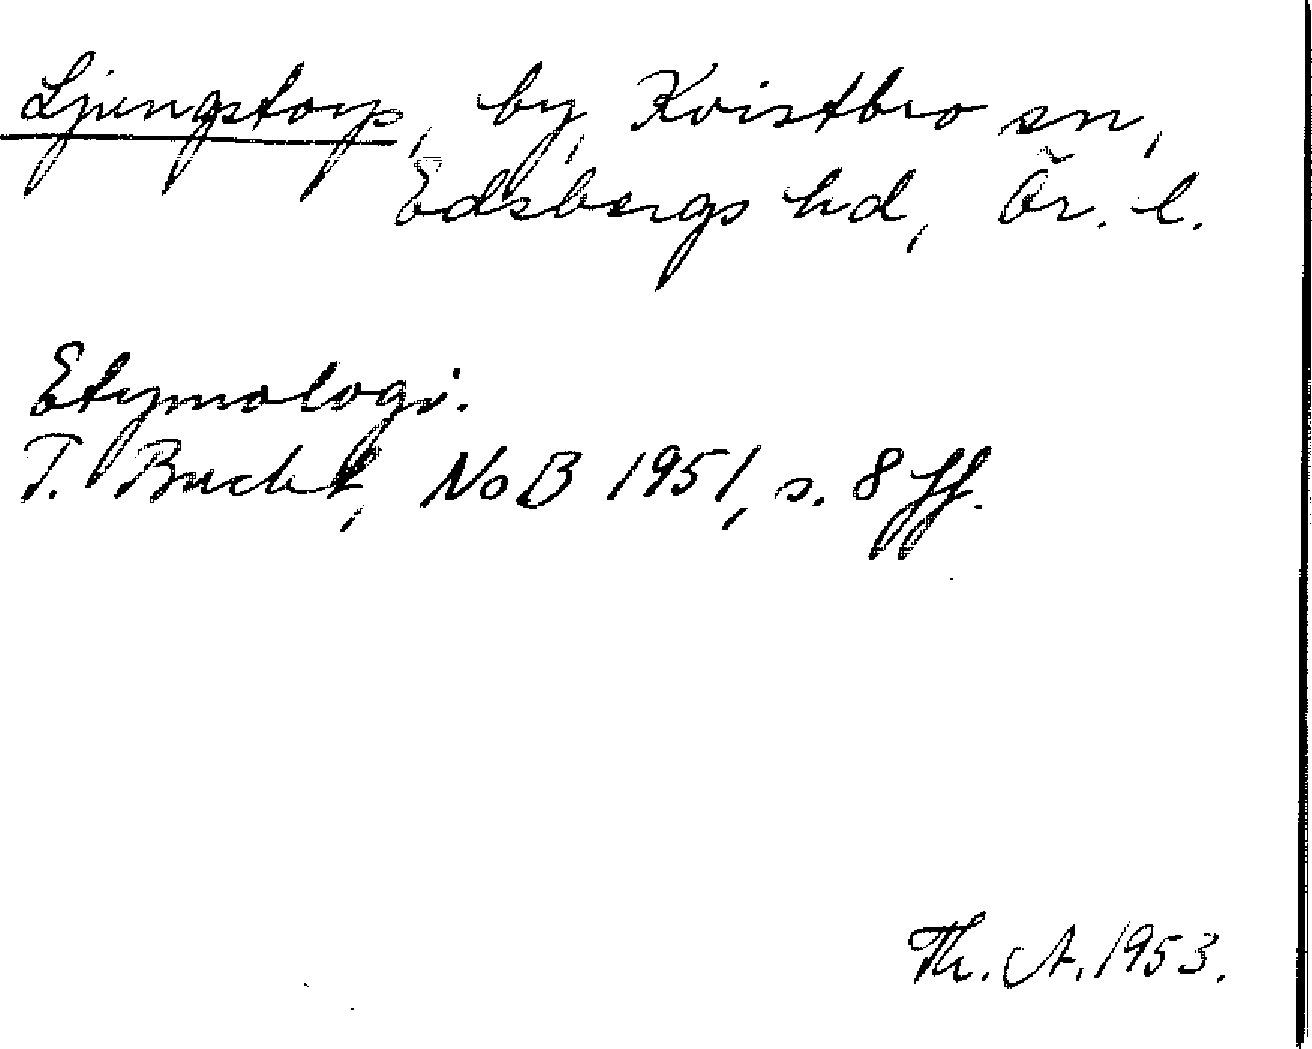 Ljungstorp, by, Kvistbro sn,
Edsbergs hd, Ör. l.
Etymologi.
T. Bucht, NoB 1951, s. 8 ff.
Th. A. 1953.